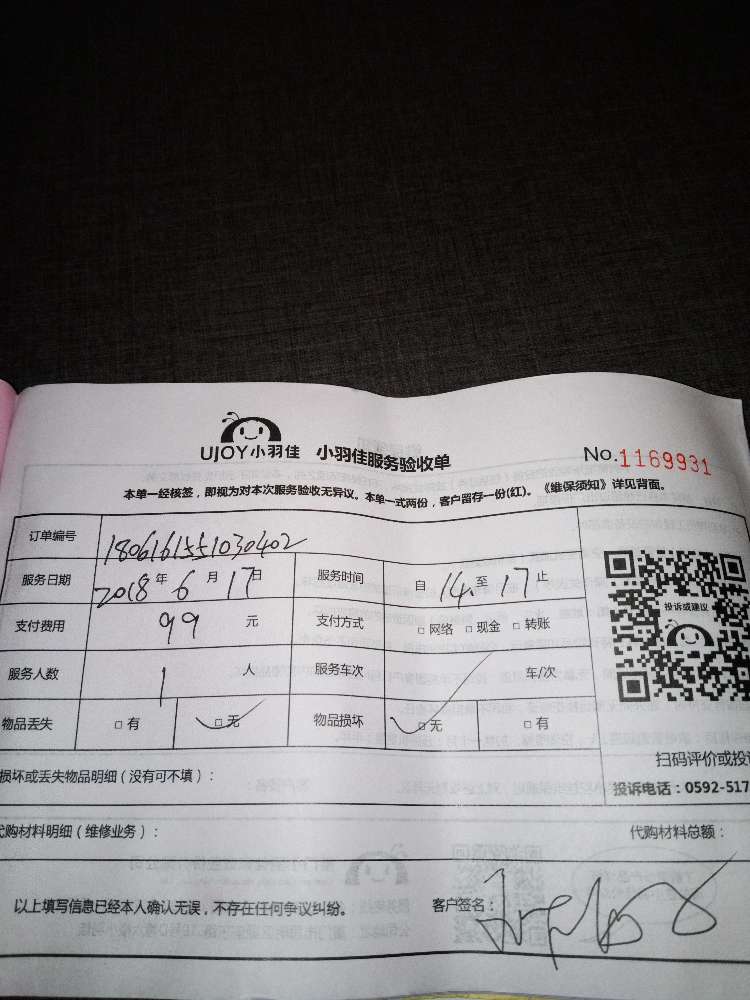 UJOY小羽佳 小羽佳服务验收单 No.1169931
本单一经核签，即视为对本次服务验收无异议。本单一式两份，客户留存一份(红)。《维保须知》详见背面。
订单编号 1806161551030402
服务日期 2018年6月17日 服务时间 自14至17止
支付费用 99元 支付方式 □网络 □现金 □转账
投诉或建议
服务人数 1人 服务车次 车/次
物品丢失 □有 □无 物品损坏 □无 □有
扫码评价或投
损坏或丢失物品明细（没有可不填）：
投诉电话：0592-517
代购材料明细（维修业务）：
代购材料总额：
以上填写信息已经本人确认无误，不存在任何争议纠纷。 客户签名：